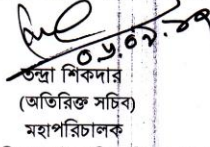 ০৮.০২.১৭
তন্দ্রা শিকদার
(অতিরিক্ত সচিব)
মহাপরিচালক